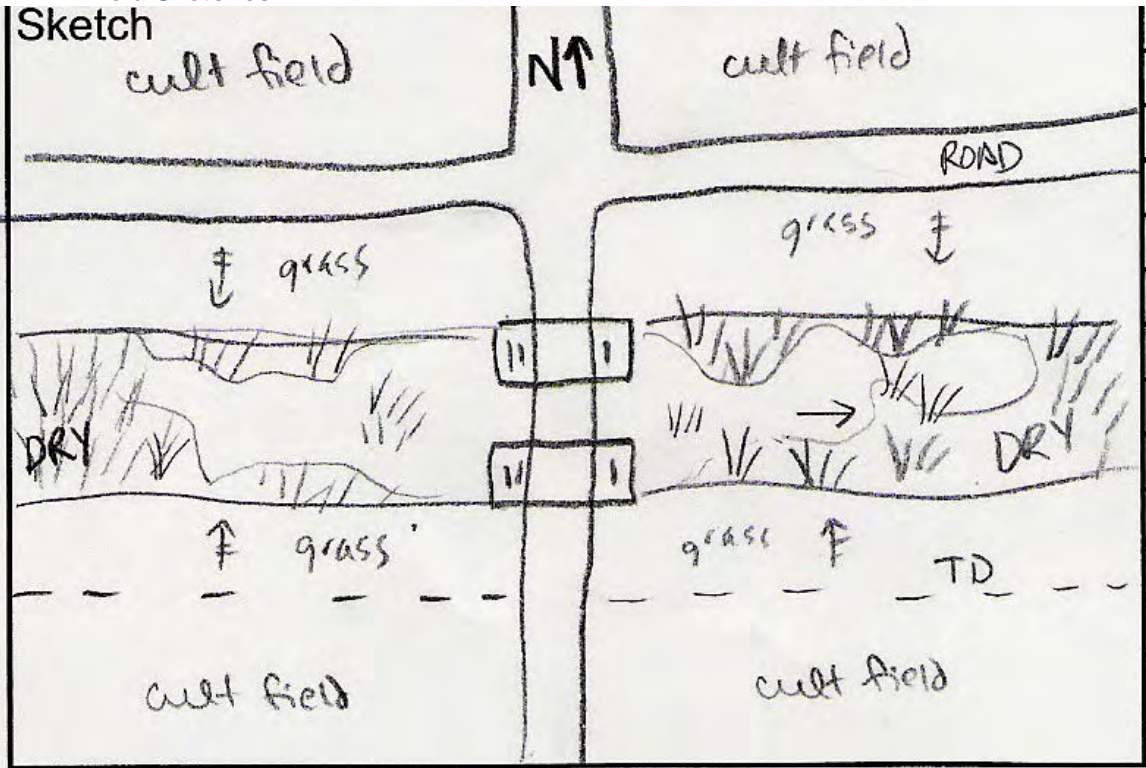 Sketch
cult field
N
cult field
ROAD
grass
grass
DRY
DRY
grass
grass
TD
cult field
cult field